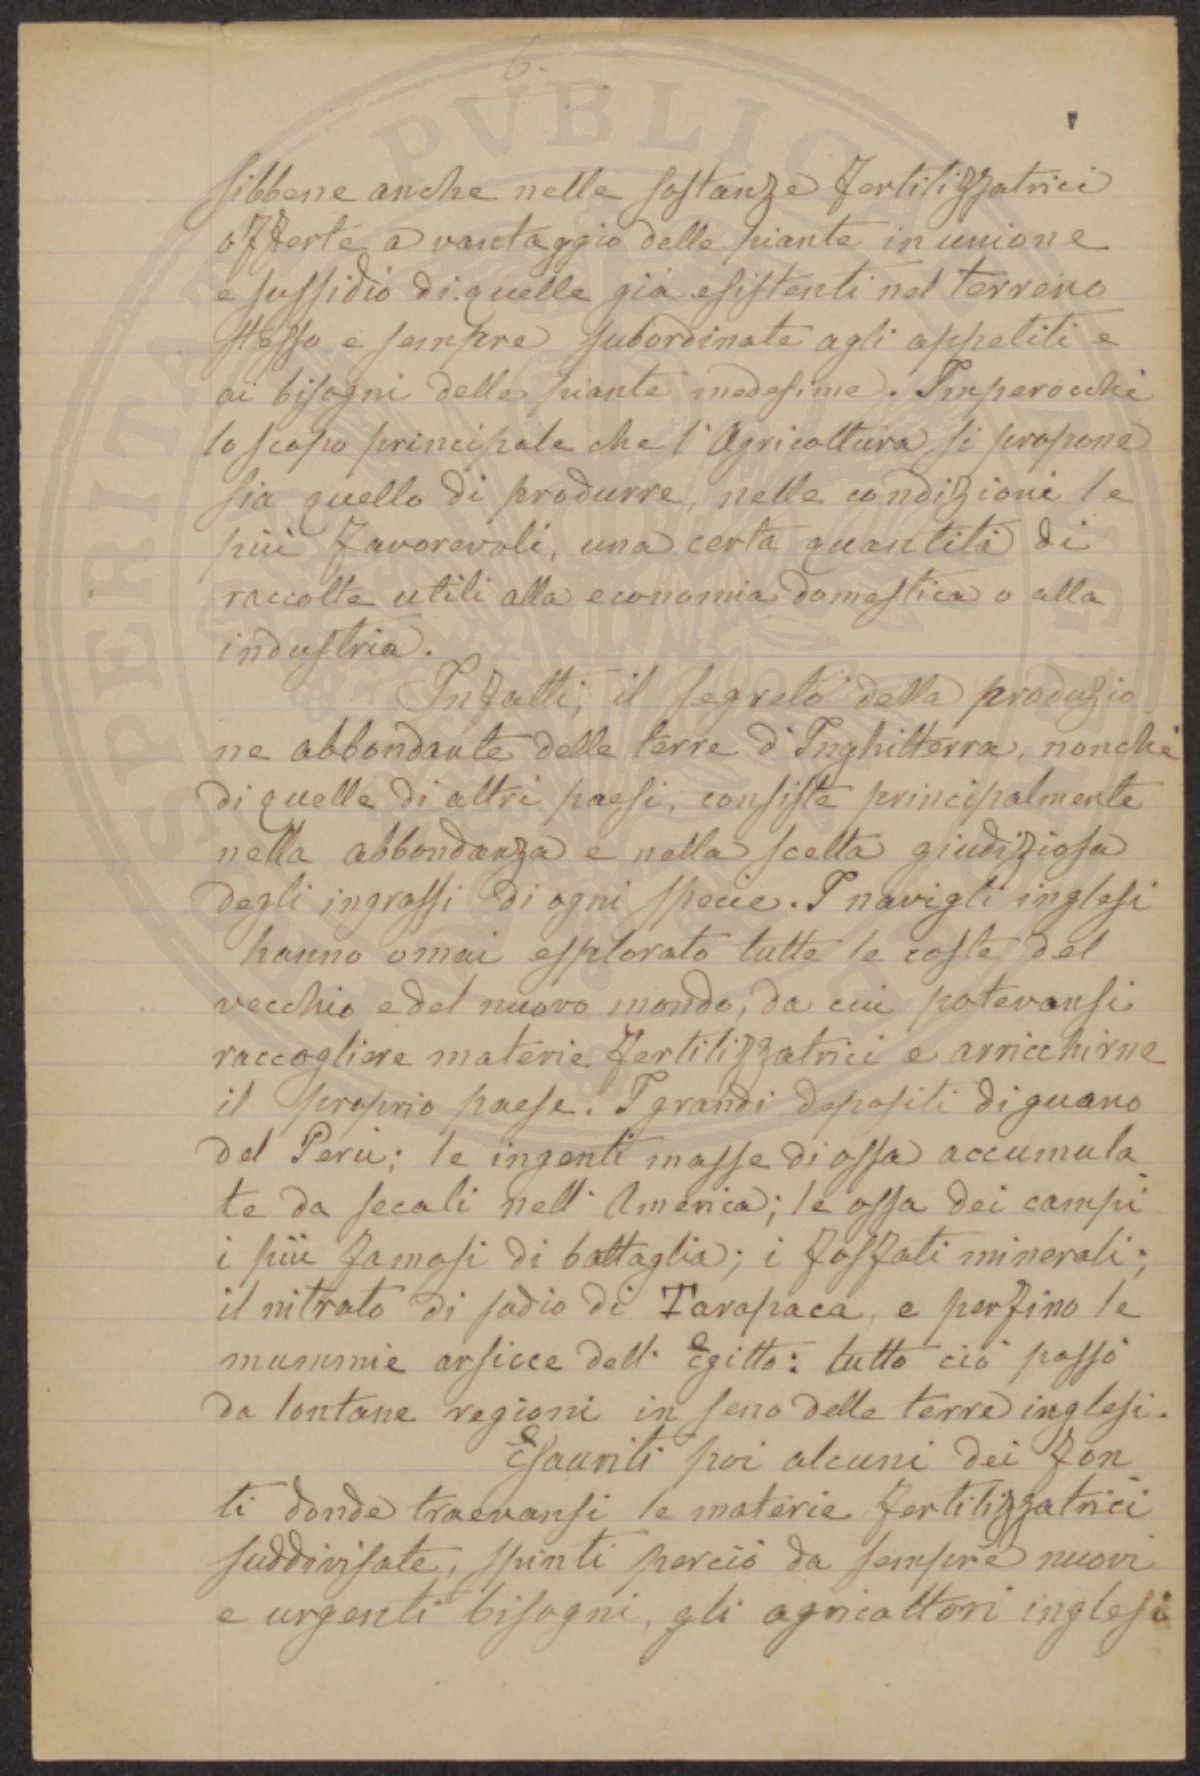 6.
PVBLIC
SPERITAT
sibbene anche nelle sostanze fertilizzatrici
offerte a vantaggio delle piante in unione
e sussidio di quelle già esistenti nel terreno
stesso e sempre subordinate agli appetiti e
ai bisogni delle piante medesime. Imperocchè
lo scopo principale che l'Agricoltura si propone
sia quello di produrre, nelle condizioni le
più favorevoli, una certa quantità di
raccolte utili alla economia domestica o alla
industria.
Infatti, il segreto della produzio
ne abbondante delle terre d'Inghilterra, nonchè
di quelle di altri paesi, consiste principalmente
nella abbondanza e nella scelta giudiziosa
degli ingrassi di ogni specie. I navigli inglesi
hanno omai esplorato tutte le coste del
vecchio e del nuovo mondo, da cui potevansi
raccogliere materie fertilizzatrici e arricchirne
il proprio paese. I grandi depositi di guano
del Perù; le ingenti masse di ossa accumula
te da secoli nell'America; le ossa dei campi
i più famosi di battaglia; i fosfati minerali;
il nitrato di sodio di Tarapaca, e perfino le
mummie arsicce dell'Egitto: tutto ciò passò
da lontane regioni in seno delle terre inglesi.
Esauriti poi alcuni dei fon
ti donde traevansi le materie fertilizzatrici
suddivisate, spinti perciò da sempre nuovi
e urgenti bisogni, gli agricoltori inglesi